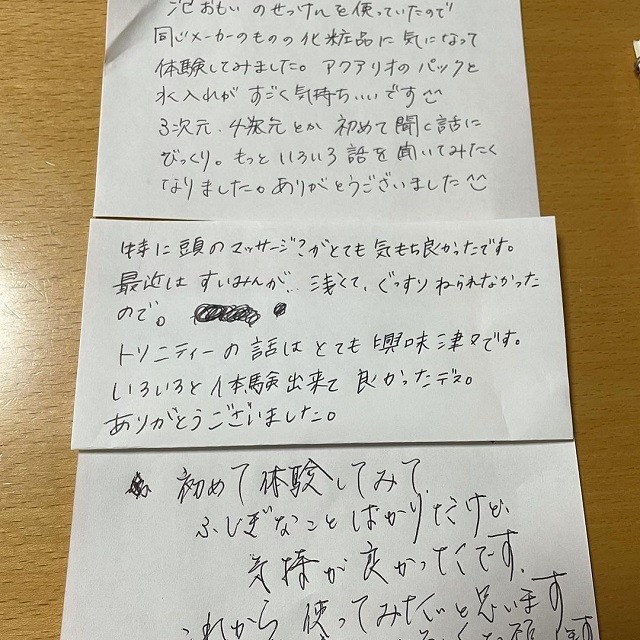 泥おもい のせっけんを使っていたので
同じメーカーのものの化粧品に気になって
体験してみました。アクアリオのパックと
水入れが すごく気持ちいいです
3次元.4次元とか 初めて聞く話に
びっくり。もっといろいろ話を聞いてみたく
なりました。ありがとうございました
特に頭のマッサージ?がとても気もち良かったです。
最近は すいみんが、浅くて、ぐっすりねられなかった
ので。
トリニティーの話はとても興味津々です。
いろいろと体験出来て良かったデス。
ありがとうございました。
初めて体験してみて、
ふしぎなことばかりだけど、
気持が良かったです。
これから使ってみたいと思います